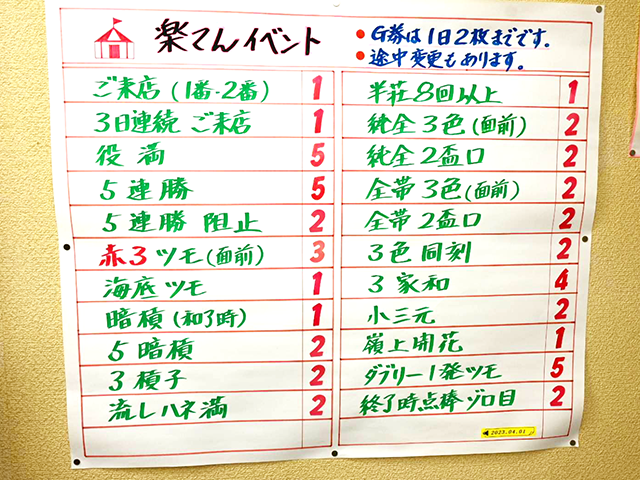 楽てんイベント
• G券は1日2枚までです.
• 途中変更もあります.
ご来店 (1番・2番) 1
3日連続 ご来店 1
役満 5
5連勝 5
5連勝 阻止 2
赤3ツモ(面前) 3
海底ツモ 1
暗槓 (和了時) 1
5暗槓 2
3槓子 2
流しハネ満 2
半荘8回以上 1
純全3色(面前) 2
純全2盃口 2
全帯3色(面前) 2
全帯2盃口 2
3色同刻 2
3家和 4
小三元 2
嶺上開花 1
ダブリー1発ツモ 5
終了時点棒ゾロ目 2
2023.04.01